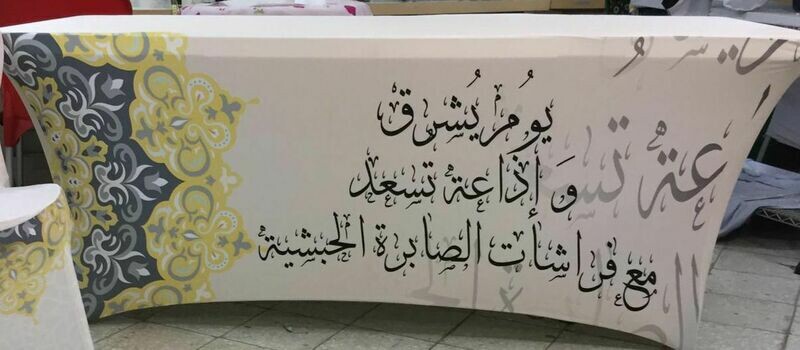 يومُ يُشرق
وَ إذاعة تسعد
مع فراشات الصابرة الحبشية
عة تس